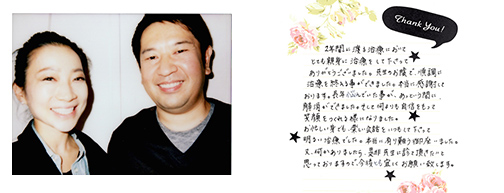 Thank You!
2年間に渡る治療において
とても親身に治療をして下さって
ありがとうございました。先生のお陰で、順調に
治療を終える事ができました。本当に感謝して
おります。長年悩んでいた事が、あっという間に
解消ができました。そして何より自信をもって
笑顔をつくれる様になりました。
お忙しい身でも、楽しい会話をいつもして下さって
明るい治療でした。本当に有り難う御座いました。
又、何かありましたら、是非先生に診て頂きたいと
思っておりますので、今後とも宜しくお願い致します。